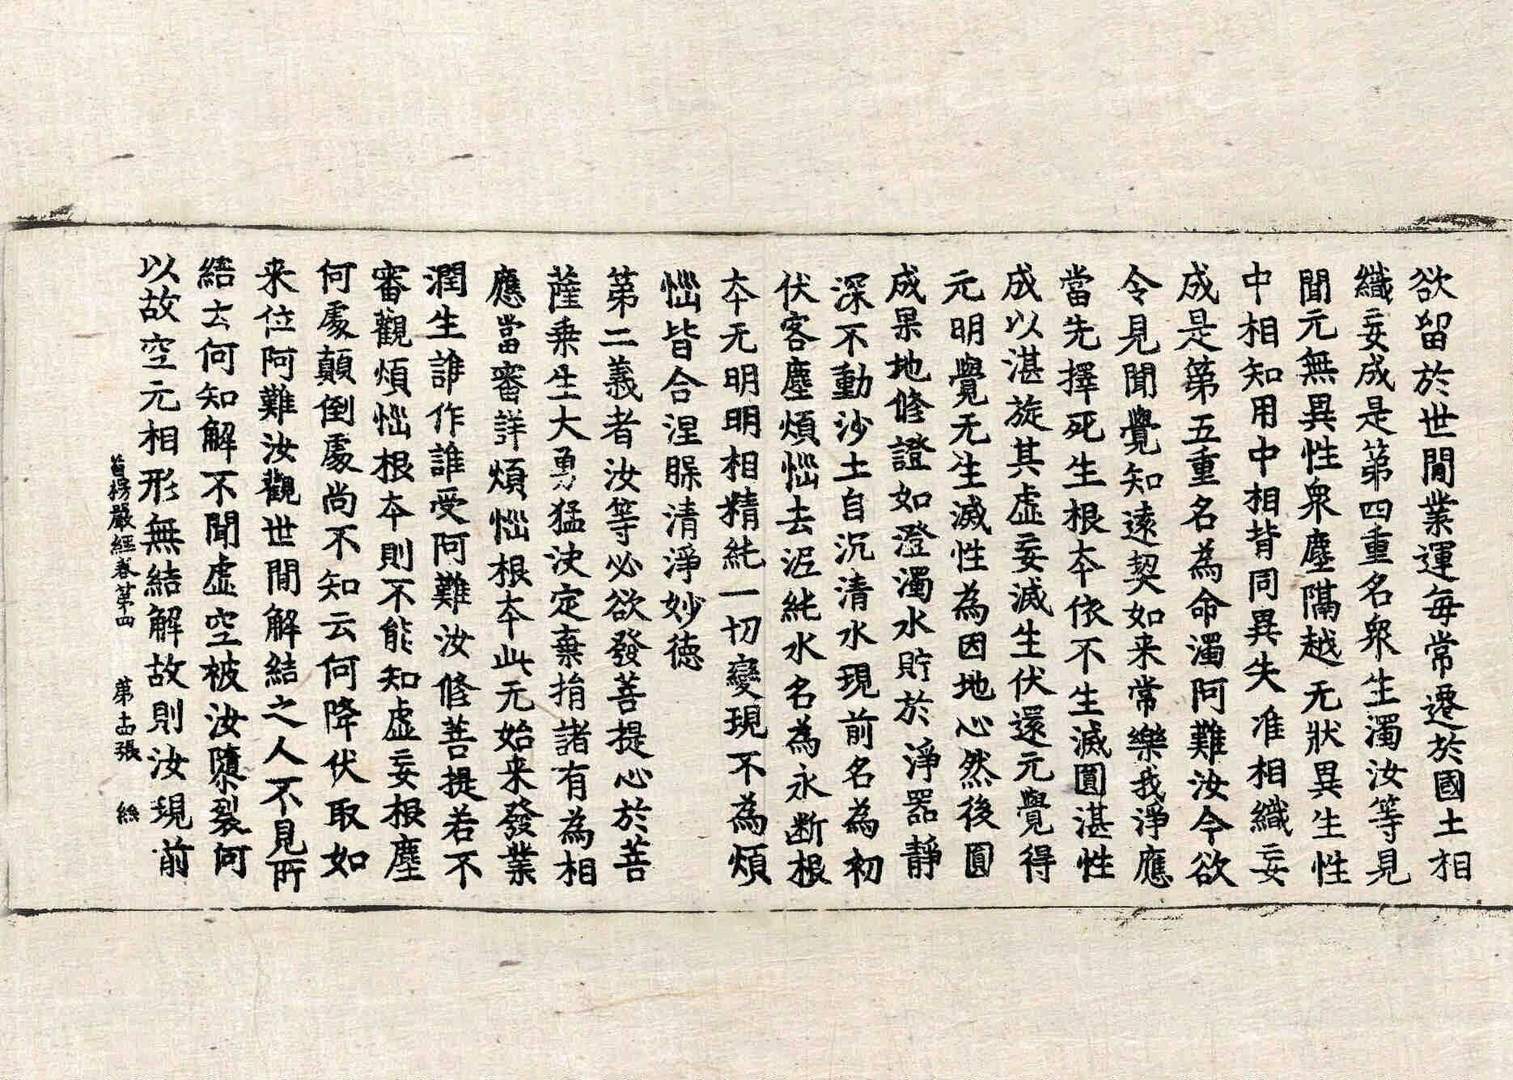 欲留於世間業運每常遷於國土相
織妄成是第四重名衆生濁汝等見
聞元無異性衆塵隔越无狀異生性
中相知用中相背同異失准相織妄
成是第五重名為命濁阿難汝今欲
令見聞覺知遠契如来常樂我淨應
當先擇死生根夲依不生滅圓湛性
成以湛旋其虛妄滅生伏還元覺得
元明覺无生滅性為因地心然後圓
成果地修證如澄濁水貯於淨器靜
深不動沙土自沉清水現前名為初
伏客塵煩惱去泥純水名為永断根
夲无明明相精純一切變現不為煩
惱皆合涅槃清淨妙德
第二義者汝等必欲發菩提心於菩
薩乗生大勇猛決定棄捐諸有為相
應當審詳煩惱根夲此元始来發業
潤生誰作誰受阿難汝修菩提若不
審觀煩惱根夲則不能知虛妄根塵
何處顛倒處尚不知云何降伏取如
来位阿難汝觀世間解結之人不見所
結云何知解不聞虛空被汝隳裂何
以故空元相形無結解故則汝現前
首楞嚴經卷第四 第十五張 絲